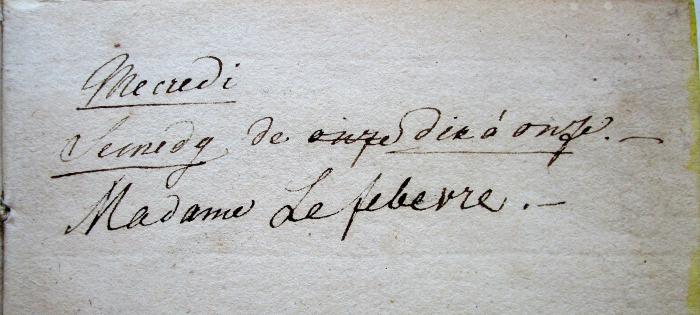 Mecredi
Semedy de onze dix á onze. —
Madame Lefebevre. —